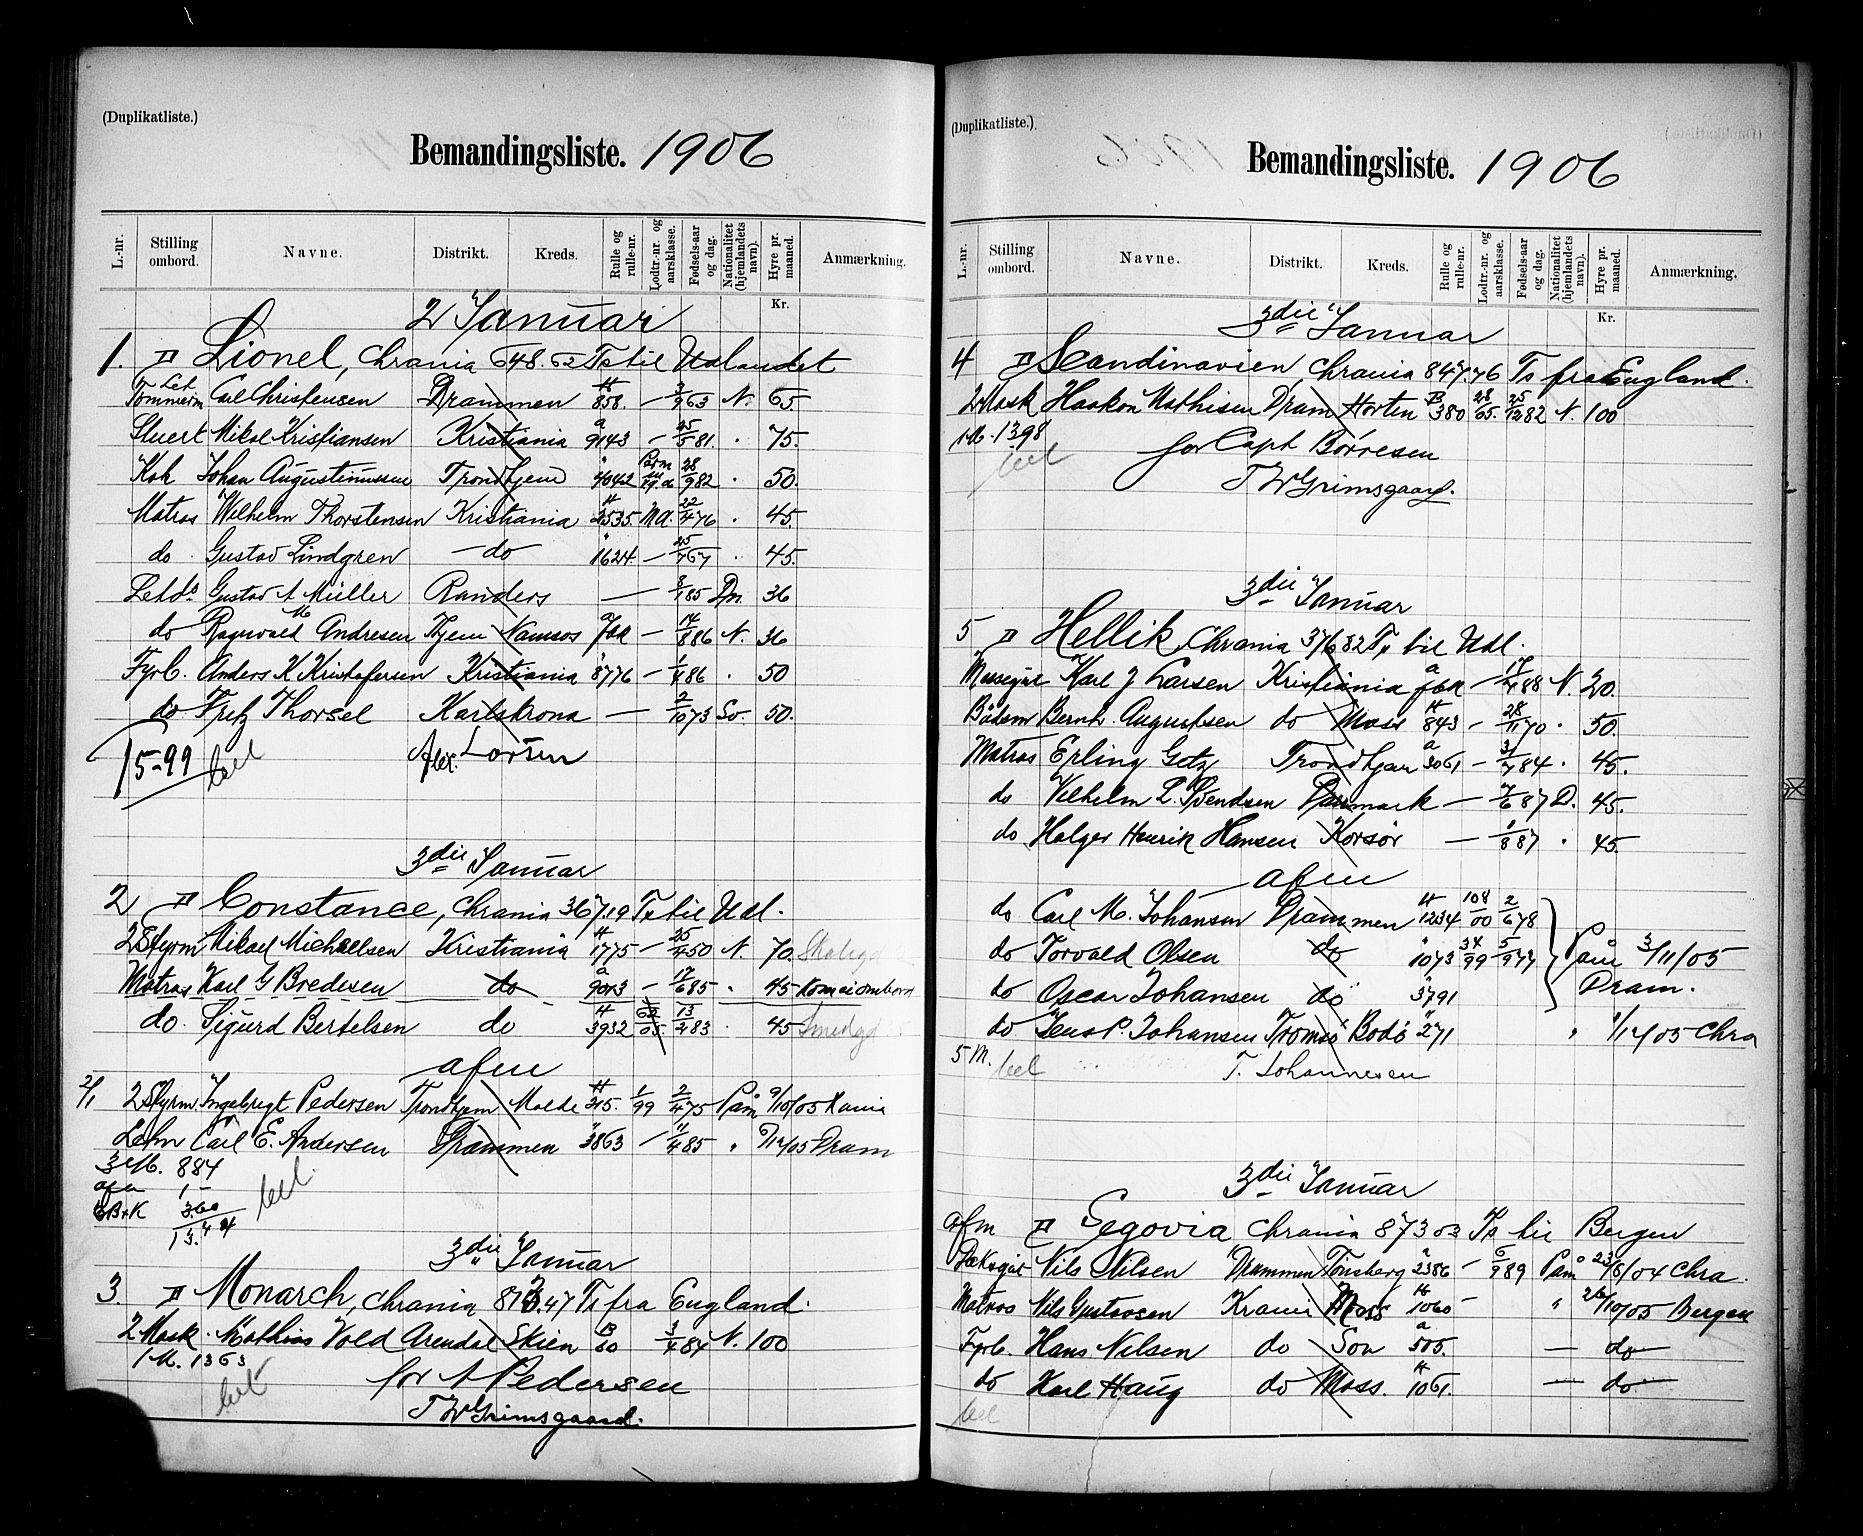 (Duplikatliste.)
Bemandingsliste. 1906
L.-nr. Stilling ombord. Navne. Distrikt. Kreds. Rulle og rulle-nr. Lodtr.-nr. og aarsklasse. Fødsels-aar og dag. Nationalitet (hjemlandets navn). Hyre pr. maaned. Anmærkning.
Kr.
2 Januar
1. Lionel, Chrania 648.62 Ts til Udlandet
Let Tømmerm Carl Christensen Drammen H 858. — 2/9 63 N. 65.
Stuert Mikal Kristiansen Kristiania a 9143 — 25/5 81. . 75.
Kok Johan Augustinussen Trondhjem " 4042 28/9 82 . 50.
Matros Wilhelm Thorstensen Kristiania H 2535. Md. 22/4 76 . 45.
do Gustav Lindgren — do — " 1624. — 25/7 67 . 45.
Letd. Gustav A Müller Randers — 3/1 85 Dn. 36
do Ragnvald M Andresen Thjem Namsos fbk — 17/8 86 N. 36
Fyrb. Anders K Kristofersen Kristiania 8776 — 1/4 86 . 50
do Fritz Thorsel Karlskrona — 2/10 73 Sv. 50.
15-99 bet Alex. Larsen
3die Januar
2 Constance, Chrania 367.19 Ts til Udl.
2 Styrm Mikael Michaelsen Kristiania H 1775 — 25/4 50 N. 70.
Matros Karl G Bredesen do a 9013 — 17/6 85 " 45 Kom ei ombord
do. Sigurd Bertelsen do H 3932 62/05 13/2 83 . 45
afm
2/1 2 Styrm. Ingebrigt Pedersen Trondhjem Molde H 215. 1/99 2/4 75 Paam 9/10/05 Krania
Letm Carl E. Andersen Drammen " 3863 — 11/4 85 " 6/12/05 Dram
3 M. 884
afm 1 –
3 B+K 3.60
13.44 bet
3die Januar
3. Monarch, Chrania 813.47 Ts fra England.
2 Mask. Mathias Vold Arendal Skien B 80 3/4 84 N. 100
1 M. 1363 for A Pedersen
bet T W Grimsgaard.
(Duplikatliste.)
Bemandingsliste. 1906
L.-nr. Stilling ombord. Navne. Distrikt. Kreds. Rulle og rulle-nr. Lodtr.-nr. og aarsklasse. Fødsels-aar og dag. Nationalitet (hjemlandets navn). Hyre pr. maaned. Anmærkning.
Kr.
3die Januar
4 Scandinavien Chrania 847.76 Ts fra England.
2 Mask Haakon Mathisen Dram Horten B 380 28/65. 25/12 82 N. 100
1 M. 1398 for Capt Børresen
bet T W Grimsgaard.
3die Januar
5 Hellik, Chrania 376 82 Ts til Udl.
Messegut Karl J Larsen Kristiania a fbk — 17/4 88 N. 20.
Baadsm Bernh. Augustsen do Moss H 843 — 28/11 70 . 50.
Matros Erling Getz Trondhjem a 3061 — 3/7 84 . 45.
do Vilhelm L. Svendsen Danmark — 7/6 87 D. 45.
do Holger Henrik Hansen Korsør — 1/8 87 . 45.
afm
do Carl M. Johansen Drammen H 1234 108/00 2/6 78
do Torvald Olsen do " 1073 34/99 5/9 77 Paam 3/11/05
do Oscar Johansen do " 3791 Dram.
do Jens P. Johansen Tromsø Bodø " 271 " 1/12 05 Chra
5 M. bet T. Johannesen
3die Januar
afm Segovia Chrania 873 03 Ts til Bergen
Dæksgut Nils Nilsen Drammen Tønsberg " 2386 — 6/9 89 Paam 23/8/04 Chra.
Matros Nils Gustavsen Krania Moss H 1060 — " 26/10/05 Bergen
Fyrb. Hans Nilsen do Son a 505. — do —
do Karl Haug do Moss. H 1061. — do —
bet